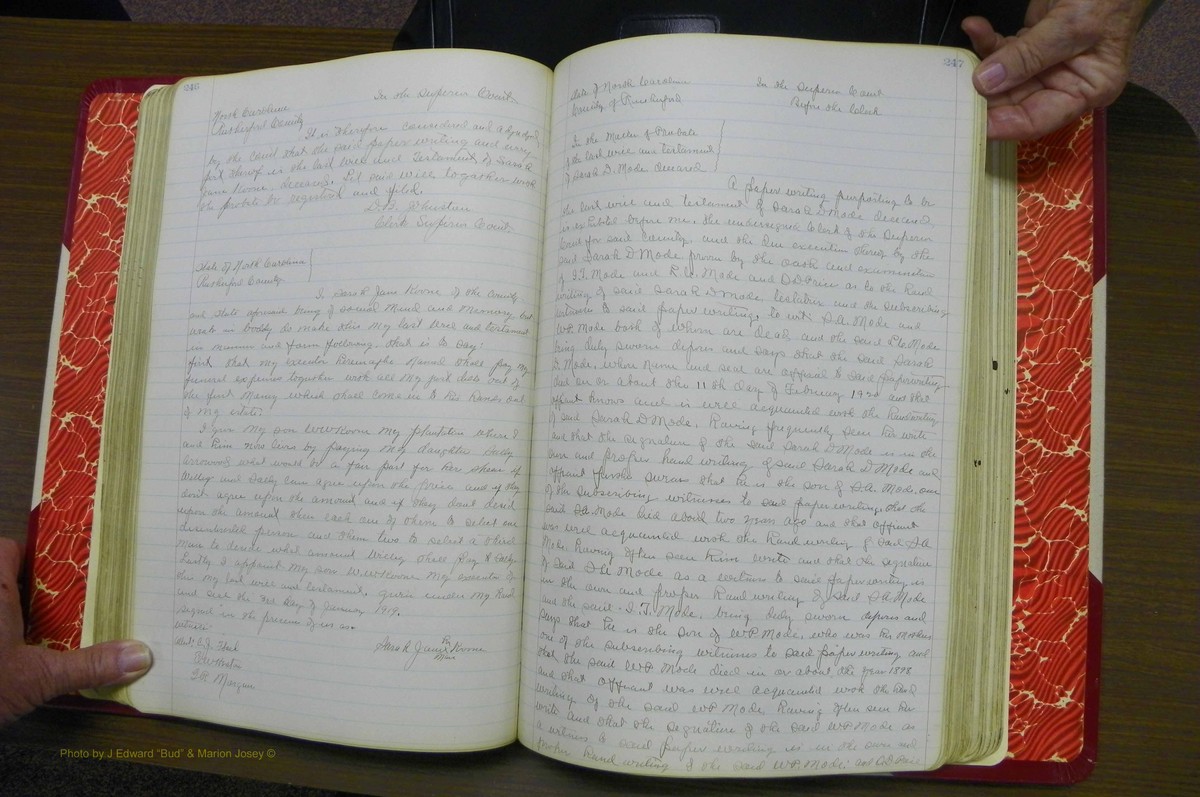 246
North Carolina
Rutherford County
In the Superior Court
It is therefore considered and adjudged
by the Court that the said paper writing and every
part thereof is the last will and testament of Sarah
Jane Koone, deceased. Let said will together with
the probate be registered and filed.
Clerk Superior Court.
State of North Carolina
Rutherford County
I Sarah Jane Koone of the County
and State aforesaid being of sound mind and memory but
weak body do make this my last will and testament
in manner and form following, that is to say:
first that my executor hereinafter named shall pay my
funeral expenses together with all my just debts out of
the first money which shall come in to his hands out
of my estate.
I give my son W.W. Koone my plantation where I
and him now live by paying my daughter Sally
what would be a fair part for her share if
Wiley and Sally can agree upon the price and if they
dont agree upon the amount and if they dont decid
upon the amount then each one of them to select one
disinterested person and them two to select a third
man to decide what amount Wiley shall pay to Sally
Lastly I appoint my son W.W. Koone my executor of
this my last will and testament, given under my hand
and seal the 3rd day of January 1919.
Signed in the presence of us as
witness:
Sarah Jane Koone
her
mark
247
State of North Carolina
County of Rutherford
In the Superior Court
Before the Clerk
In the Matter of Probate
of the last will and testament
of Sarah D. Mode deceased
A paper writing purporting to be
the last will and testament of Sarah D Mode deceased,
is exhibited before me, the undersigned Clerk of the Superior
Court for said county, and the due execution thereof by the
said Sarah D Mode proven by the oath and examination
of I.T. Mode and R.W. Mode and as to the hand
writing of said Sarah D Mode testatrix and the subscribing
witnesses to said paper writing, to wit: Mode and
W.P. Mode both of whom are dead, and the said Mode
being duly sworn deposes and says that the said Sarah
D. Mode, whose name and seal are affixed to said paperwriting
died on or about the 11th day of February 1920 and that
affiant knows and is well acquainted with the handwriting
of said Sarah D Mode, having frequently seen her write
and that the signature of the said Sarah D Mode is in the
own and proper hand writing of said Sarah D Mode and
affiant further swears that he is the son of Mode, one
of the subscribing witnesses to said paper writing, that the
said Mode died about two years ago and that affiant
was well acquainted with the hand writing of said
Mode having often seen him write and that the signature
of said Mode as a witness to said paper writing is
in the own and proper hand writing of said Mode
and the said I.T. Mode, being duly sworn deposes and
says that he is the son of W.P. Mode, who was
one of the subscribing witnesses to said paper writing and
that the said W.P. Mode died in or about the year 1898
and that affiant was well acquainted with the hand
writing of the said W.P. Mode having often seen him
write and that the signature of the said W.P. Mode as
a witness to said paper writing is in the own and
proper hand writing of the said W.P. Mode: and
Photo by J Edward "Bud" & Marion Josey ©